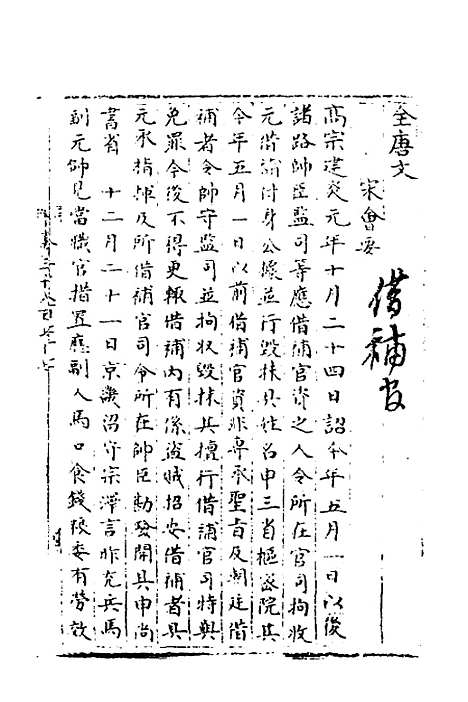 全唐文
宋會要
借補官
高宗建炎元年十月二十四日詔今年五月一日以後
諸路帥臣監司等應借補官資之人令所在官司拘收
元借補付身公據並行毀抹具姓名申三省樞密院其
今年五月一日以前借補官資非專承聖旨及朝廷借
補者令帥守監司並拘收毀抹其擅行借補官司特與
免罪今後不得更輙借補內有係盜賊招安借補者具
元承指揮及所借補官司令所在帥臣勘驗開具申尚
書省 十二月二十一日京畿沿守宗澤言昨充兵馬
副元帥見當職官措置應副人馬口食錢粮委有勞效